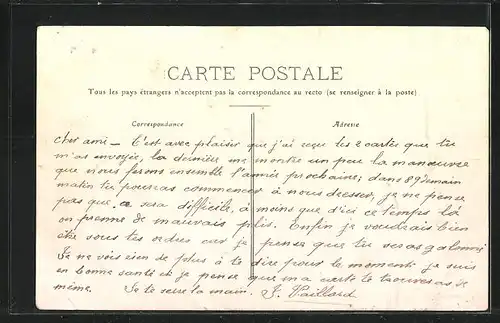 CARTE POSTALE
Tous les pays étrangers n'acceptent pas la correspondance au recto (se renseigner à la poste)
Correspondance
Adresse
Cher ami — C'est avec plaisir que j'ai reçu les 2 cartes que tu
m'as envoyée, la dernière me montre un peu la manœuvre
que nous ferons ensemble l'année prochaine; dans 89 demain
matin tu pourras commencer à nous dresser, je ne pense
pas que ce sera difficile, à moins que d'ici ce temps là
on prenne de mauvais plis. Enfin je voudrais bien
être sous tes ordres car je pense que tu seras galonné
Je ne vois rien de plus à te dire pour le moment je suis
en bonne santé et je pense que ma carte te trouveras de
même. Je te serre la main. J. Vaillard